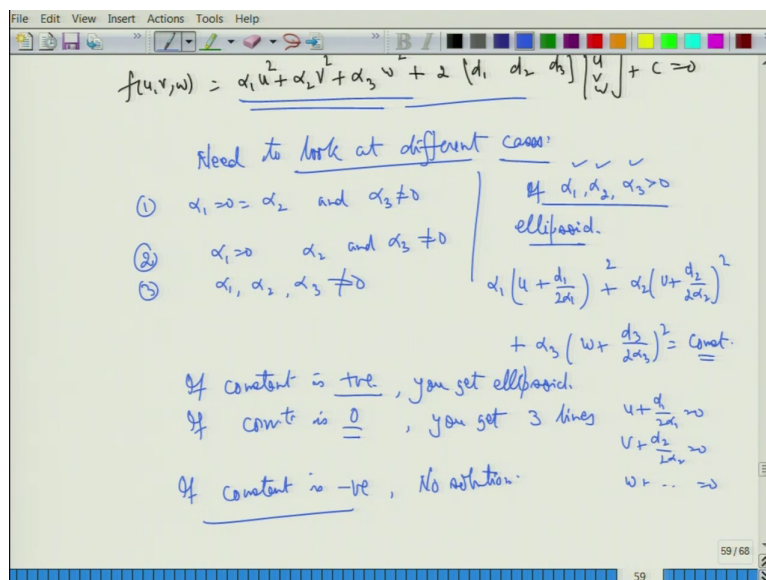 File Edit View Insert Actions Tools Help
f(u,v,w) = α₁u² + α₂v² + α₃w² + 2 [d₁ d₂ d₃] [u v w] + C = 0
Need to look at different cases:
① α₁ = 0 = α₂ and α₃ ≠ 0
② α₁ = 0 α₂ and α₃ ≠ 0
③ α₁, α₂, α₃ ≠ 0
If α₁, α₂, α₃ > 0
ellipsoid.
α₁ (u + d₁/2α₁)² + α₂ (v + d₂/2α₂)²
+ α₃ (w + d₃/2α₃)² = Const.
If constant is +ve, you get ellipsoid.
If const is 0, you get 3 lines u + d₁/2α₁ = 0
v + d₂/2α₂ = 0
w + .. = 0
If constant is -ve, No solution.
59 / 68
59